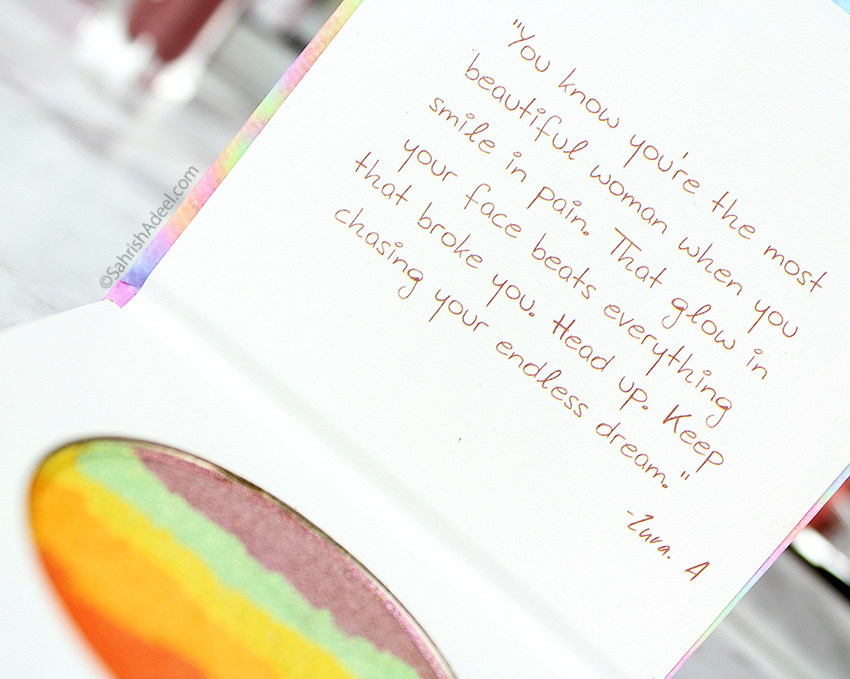 "You know you're the most
beautiful woman when you
smile in pain. That glow in
your face beats everything
that broke you. Head up. Keep
chasing your endless dream."
-Zura. A
©SahrishAdeel.com